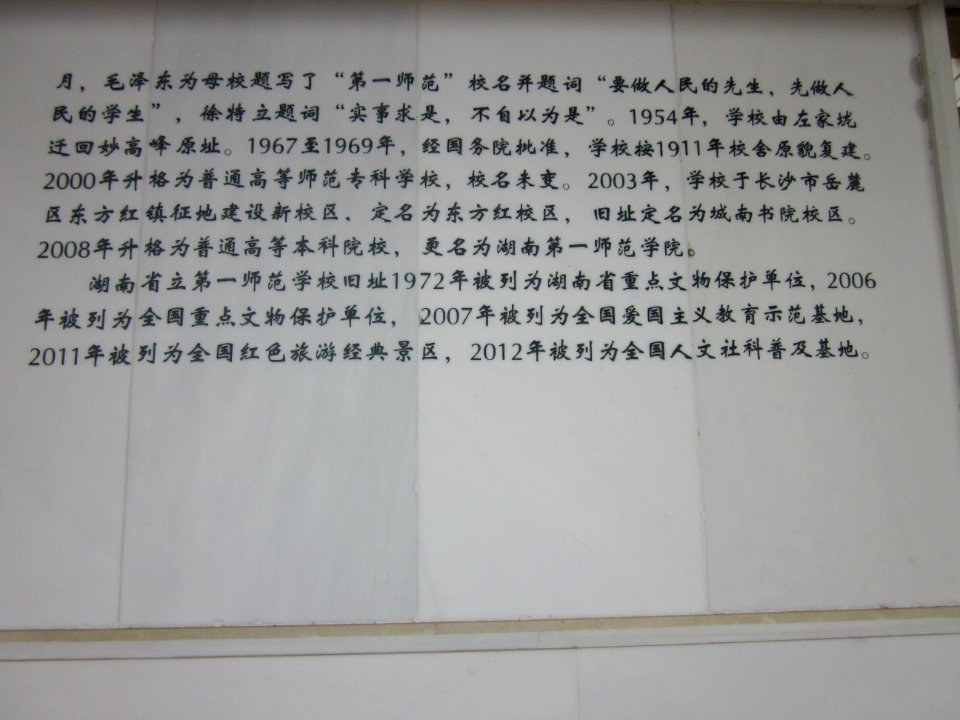 月，毛泽东为母校题写了“第一师范”校名并题词“要做人民的先生，先做人
民的学生”，徐特立题词“实事求是，不自以为是”。1954年，学校由左家垅
迁回妙高峰原址。1967至1969年，经国务院批准，学校按1911年校舍原貌复建。
2000年升格为普通高等师范专科学校，校名未变。2003年，学校于长沙市岳麓
区东方红镇征地建设新校区，定名为东方红校区，旧址定名为城南书院校区。
2008年升格为普通高等本科院校，更名为湖南第一师范学院。
湖南省立第一师范学校旧址1972年被列为湖南省重点文物保护单位，2006
年被列为全国重点文物保护单位，2007年被列为全国爱国主义教育示范基地，
2011年被列为全国红色旅游经典景区，2012年被列为全国人文社科普及基地。